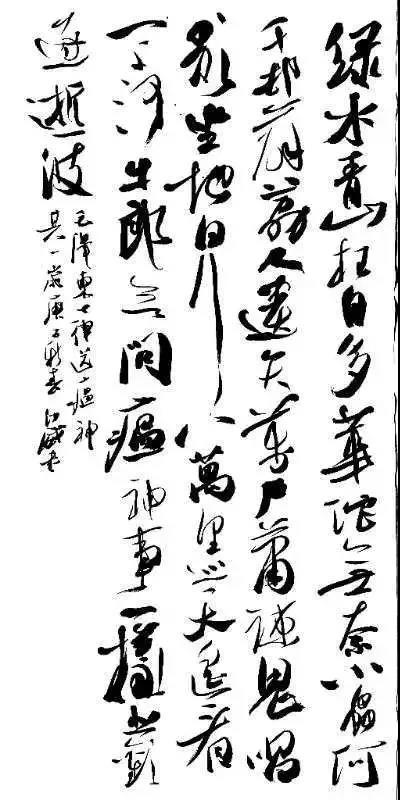 绿水青山枉自多華佗无奈小蟲何
千邨薜荔人遗矢萬户蕭疎鬼唱
歌坐地日行八萬里巡天遥看
一千河牛郎欲問瘟神事一樣悲歡
逐逝波
毛澤東七律送瘟神
其一歲庚子新春